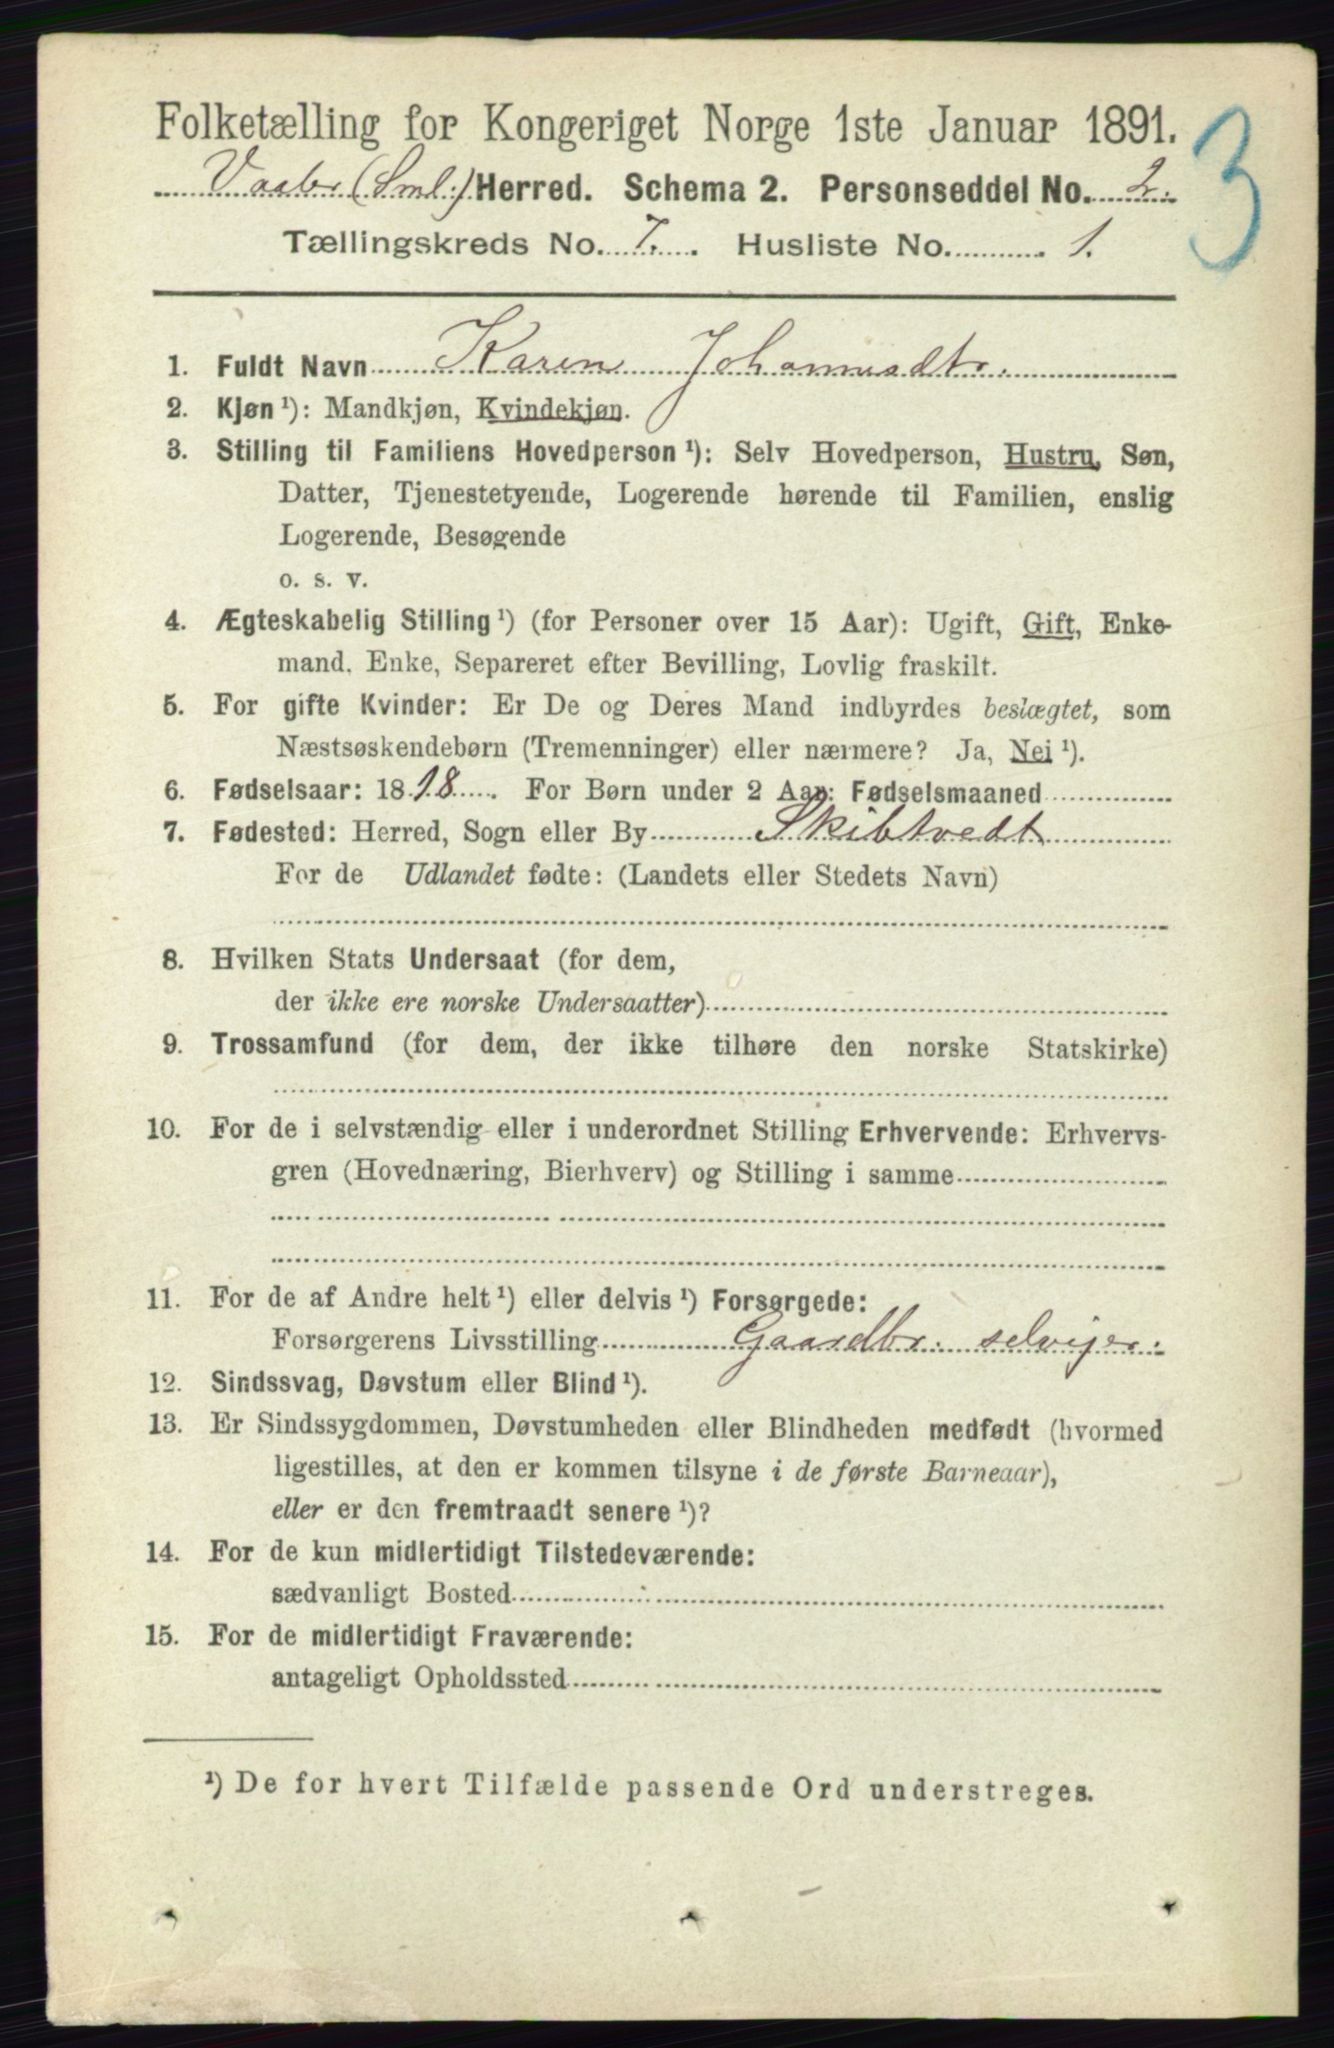 Folketælling for Kongeriget Norge 1ste Januar 1891.
3
Vaaler (Sml.) Herred. Schema 2. Personseddel No. 2.
Tællingskreds No. 7. Husliste No. 1.
1. Fuldt Navn Karen Johannesdtr.
2. Kjøn ¹): Mandkjøn, Kvindekjøn.
3. Stilling til Familiens Hovedperson ¹): Selv Hovedperson, Hustru, Søn,
Datter, Tjenestetyende, Logerende hørende til Familien, enslig
Logerende, Besøgende
o. s. v.
4. Ægteskabelig Stilling ¹) (for Personer over 15 Aar): Ugift, Gift, Enke-
mand, Enke, Separeret efter Bevilling, Lovlig fraskilt.
5. For gifte Kvinder: Er De og Deres Mand indbyrdes beslægtet, som
Næstsøskendebørn (Tremenninger) eller nærmere? Ja, Nei ¹).
6. Fødselsaar: 1818. For Børn under 2 Aar: Fødselsmaaned
7. Fødested: Herred, Sogn eller By Skibtvedt
For de Udlandet fødte: (Landets eller Stedets Navn)
8. Hvilken Stats Undersaat (for dem,
der ikke ere norske Undersaatter)
9. Trossamfund (for dem, der ikke tilhøre den norske Statskirke)
10. For de i selvstændig eller i underordnet Stilling Erhvervende: Erhvervs-
gren (Hovednæring, Bierhverv) og Stilling i samme
11. For de af Andre helt ¹) eller delvis ¹) Forsørgede:
Forsørgerens Livsstilling Gaardbr. selvejer.
12. Sindssvag, Døvstum eller Blind ¹).
13. Er Sindssygdommen, Døvstumheden eller Blindheden medfødt (hvormed
ligestilles, at den er kommen tilsyne i de første Barneaar),
eller er den fremtraadt senere ¹)?
14. For de kun midlertidigt Tilstedeværende:
sædvanligt Bosted
15. For de midlertidigt Fraværende:
antageligt Opholdssted
¹) De for hvert Tilfælde passende Ord understreges.